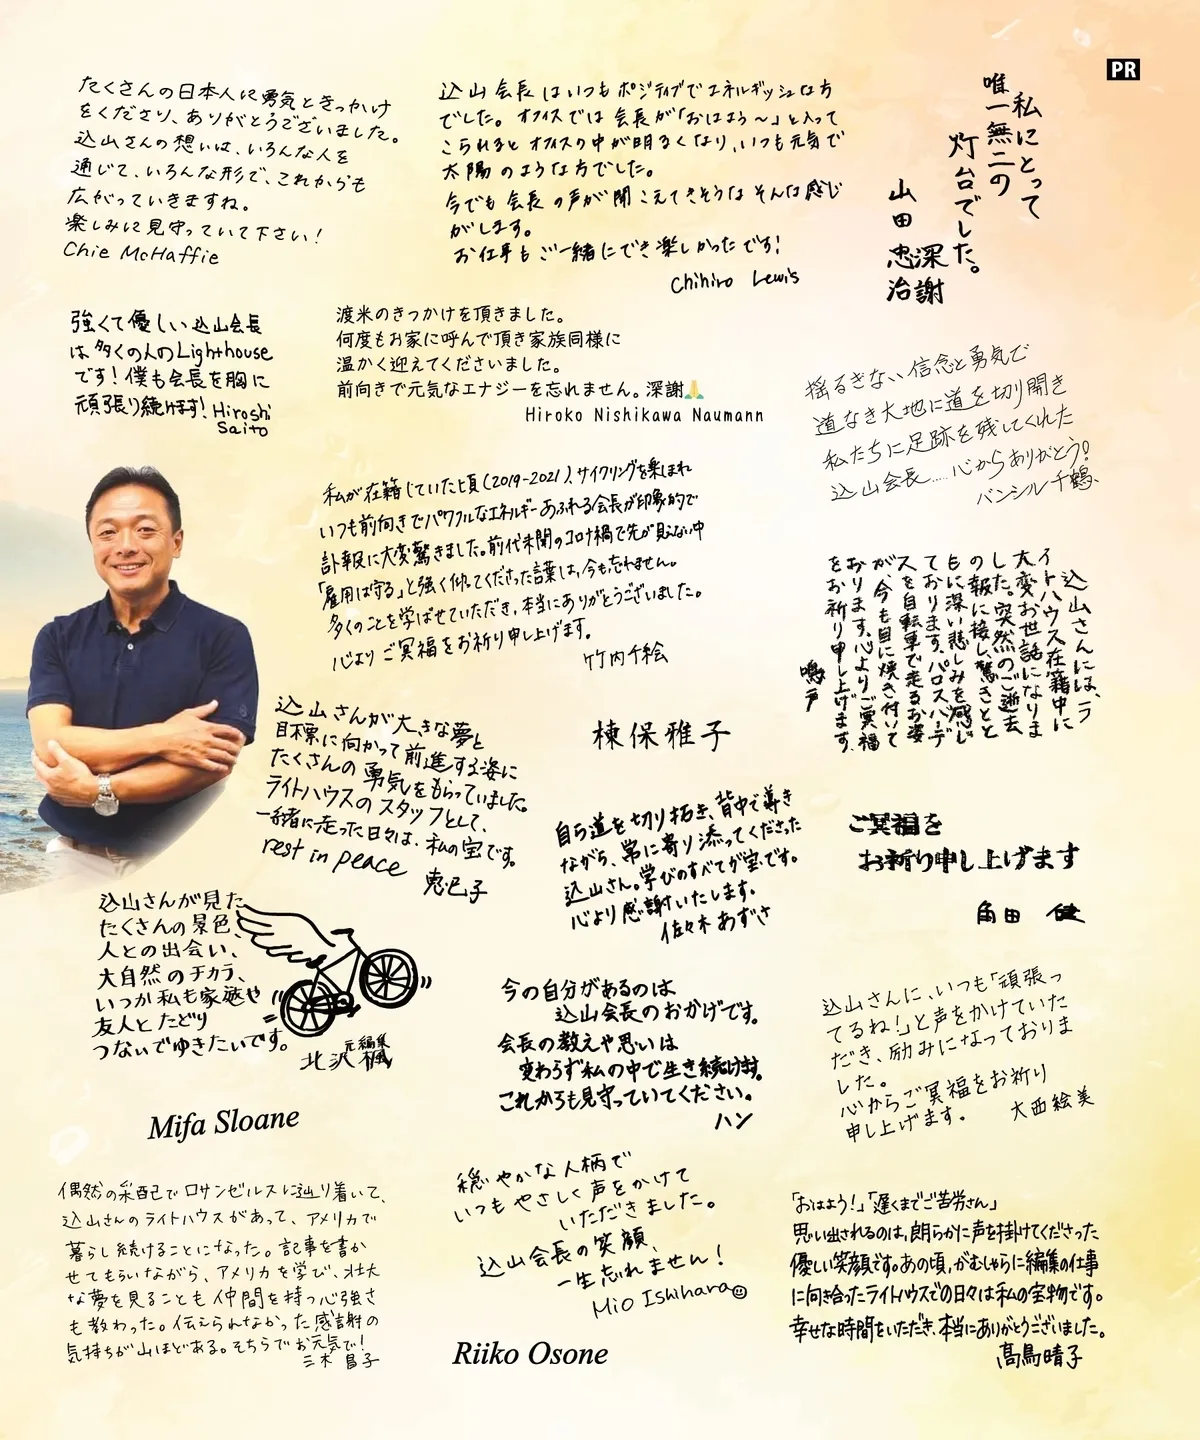 PR
たくさんの日本人に勇気ときっかけ
をくださり、ありがとうございました。
込山さんの想いは、いろんな人を
通じて、いろんな形で、これからも
広がっていきますね。
楽しみに見守っていて下さい！
Chie McHaffie
込山会長はいつもポジティブでエネルギッシュな方
でした。オフィスでは会長が「おはよう〜」と入って
こられるとオフィスの中が明るくなり、いつも元気で
太陽のような方でした。
今でも会長の声が聞こえてきそうなそんな感じ
がします。
お仕事もご一緒にでき楽しかったです！
Chihiro Lewis
私にとって
唯一無二の
灯台でした。
深謝
山田忠治
強くて優しい込山会長
は多くの人のLighthouse
です！僕も会長を胸に
頑張り続けます！Hiroshi
Saito
渡米のきっかけを頂きました。
何度もお家に呼んで頂き家族同様に
温かく迎えてくださいました。
前向きで元気なエナジーを忘れません。深謝🙏
Hiroko Nishikawa Naumann
揺るぎない信念と勇気で
道なき大地に道を切り開き
私たちに足跡を残してくれた
込山会長……心からありがとう！
バンシル千鶴
私が在籍していた頃（2019-2021）、サイクリングを楽しまれ
いつも前向きでパワフルなエネルギーあふれる会長が印象的で
訃報に大変驚きました。前代未聞のコロナ禍で先が見えない中
「雇用は守る」と強く仰ってくださった言葉は、今も忘れません。
多くのことを学ばせていただき、本当にありがとうございました。
心よりご冥福をお祈り申し上げます。
竹内千絵
込山さんには、ラ
イトハウス在籍中に
大変お世話になりま
した。突然のご逝去
の報に接し、驚きとと
もに深い悲しみを感じ
ております。パロスバーデ
スを自転車で走るお姿
が、今も目に焼き付いて
おります。心よりご冥福
をお祈り申し上げます。
鳴戸
込山さんが大きな夢と
目標に向かって前進する姿に
たくさんの勇気をもらっていました。
ライトハウスのスタッフとして、
一緒に走った日々は、私の宝です。
rest in peace
恵巳子
棟保雅子
自ら道を切り拓き、背中で導き
ながら、常に寄り添ってくださった
込山さん。学びのすべてが宝です。
心より感謝いたします。
佐々木あずさ
ご冥福を
お祈り申し上げます
角田 健
込山さんが見た
たくさんの景色、
人との出会い、
大自然のチカラ、
いつか私も家族や
友人とたどり
つないでゆきたいです。
元編集
北沢楓
今の自分があるのは
込山会長のおかげです。
会長の教えや思いは
変わらず私の中で生き続けます。
これからも見守っていてください。
ハン
込山さんに、いつも「頑張っ
てるね！」と声をかけていた
だき、励みになっておりま
した。
心からご冥福をお祈り
申し上げます。
大西絵美
Mifa Sloane
偶然の采配でロサンゼルスに辿り着いて、
込山さんのライトハウスがあって、アメリカで
暮らし続けることになった。記事を書か
せてもらいながら、アメリカを学び、壮大
な夢を見ることも仲間を持つ心強さ
も教わった。伝えられなかった感謝の
気持ちが山ほどある。そちらでお元気で！
三木昌子
穏やかな人柄で
いつもやさしく声をかけて
いただきました。
込山会長の笑顔、
一生忘れません！
Mio Ishihara☺
Riiko Osone
「おはよう！」「遅くまでご苦労さん」
思い出されるのは、朗らかに声を掛けてくださった
優しい笑顔です。あの頃、がむしゃらに編集の仕事
に向き合ったライトハウスでの日々は私の宝物です。
幸せな時間をいただき、本当にありがとうございました。
髙鳥晴子